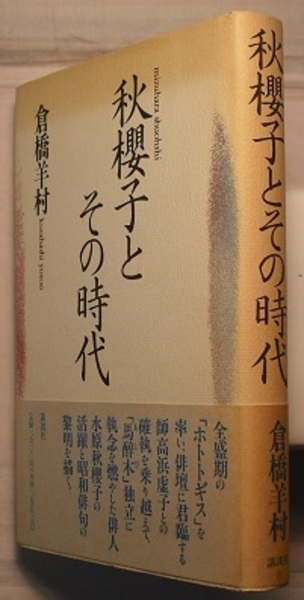 秋櫻子と
その時代
mizuhara shuohshi
倉橋羊村
kurahashi yoson
講談社
全盛期の
「ホトトギス」を
率い、俳壇に君臨する
師高浜虚子との
確執を乗り越えて、
「馬酔木」独立に
執念を燃やした俳人
水原秋櫻子の
活躍と昭和俳句の
黎明を描く。
秋櫻子とその時代
倉橋羊村
講談社